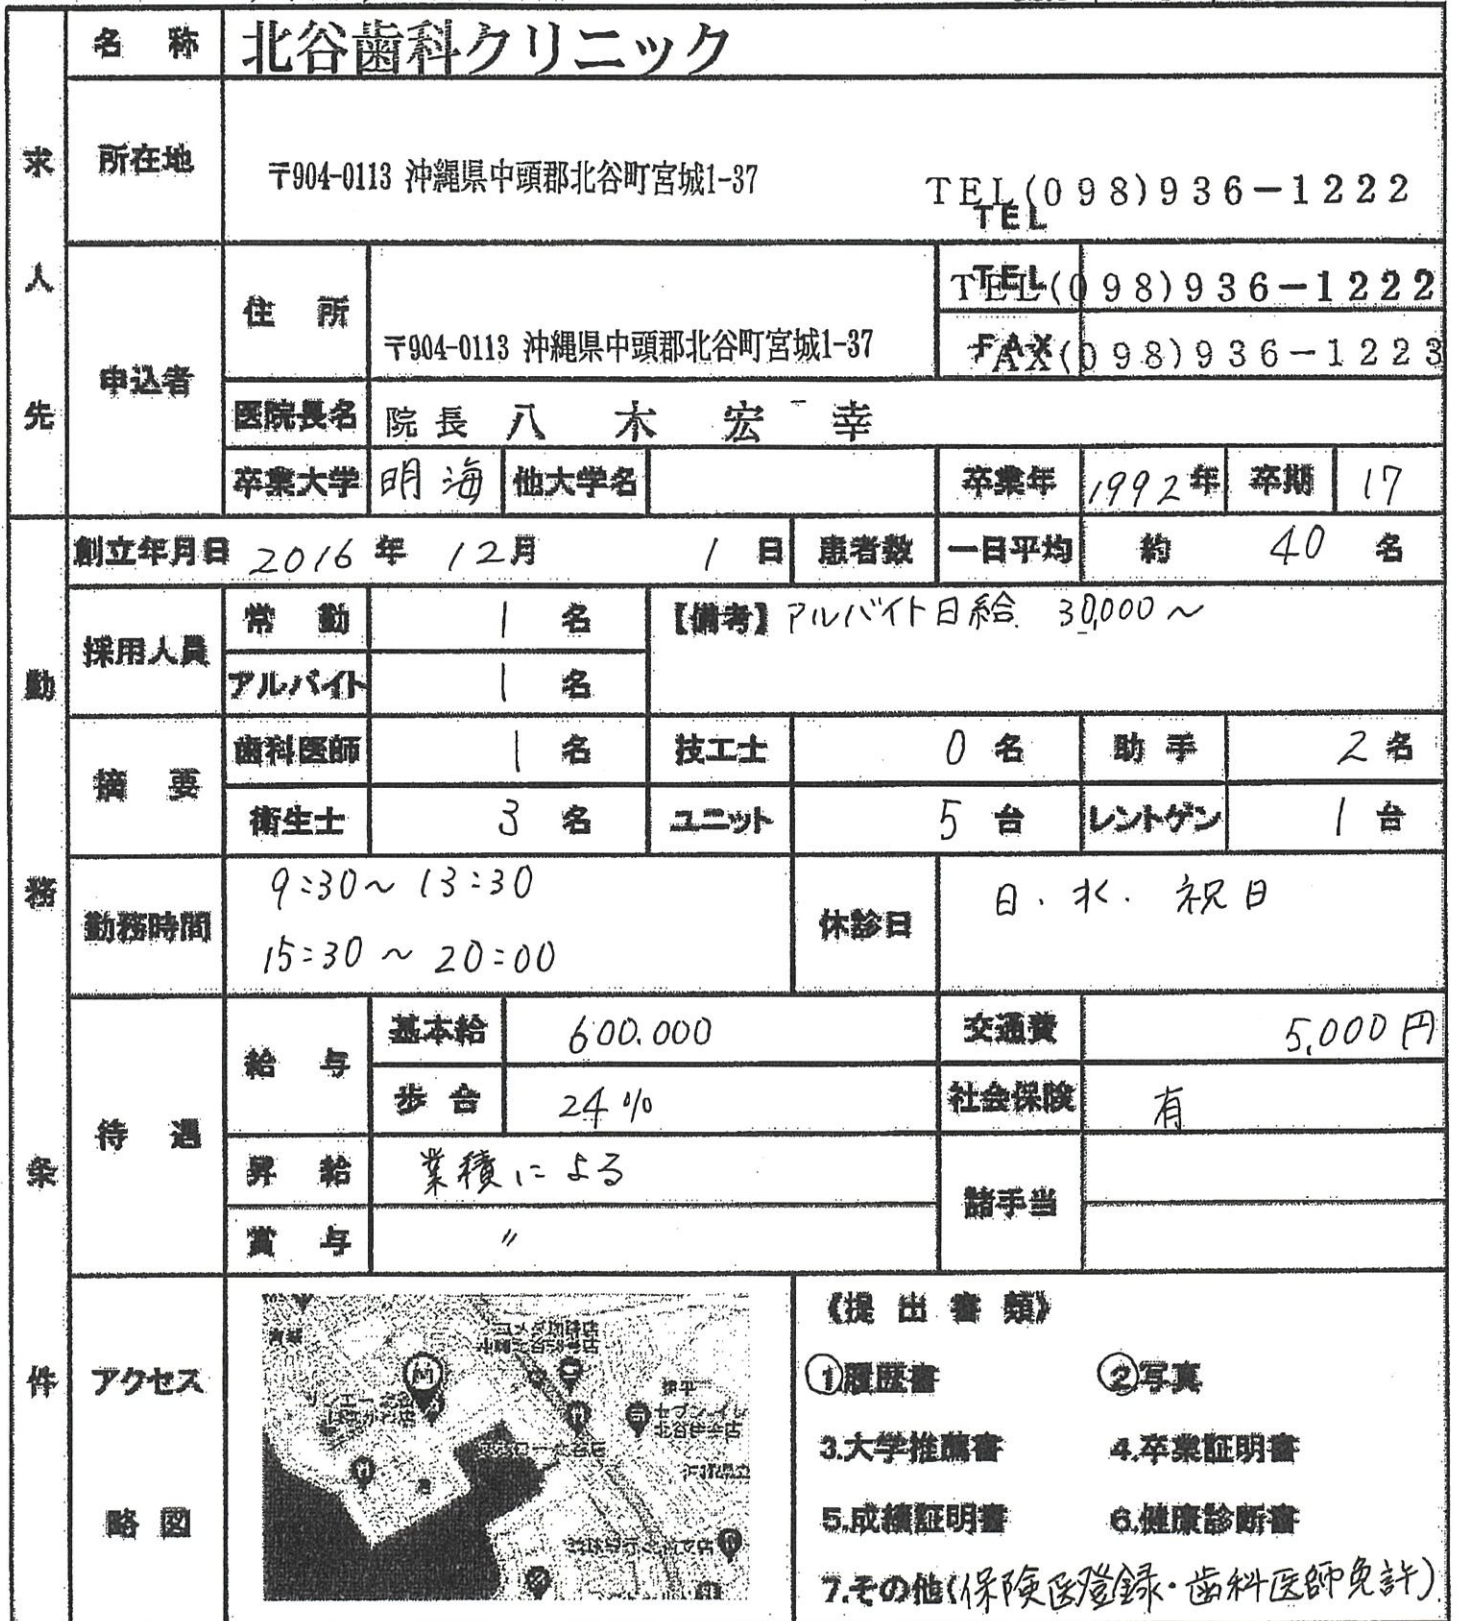 求人先
名 称 北谷歯科クリニック
所在地 〒904-0113 沖縄県中頭郡北谷町宮城1-37 TEL(098)936-1222
TEL
申込者
住 所 〒904-0113 沖縄県中頭郡北谷町宮城1-37
TEL TEL(098)936-1222
FAX FAX(098)936-1223
医院長名 院長 八木宏幸
卒業大学 明海 他大学名 卒業年 1992年 卒期 17
勤務条件
創立年月日 2016年 12月 1日 患者数 一日平均 約 40 名
採用人員 常 勤 1 名 【備考】アルバイト日給 30,000〜
アルバイト 1 名
摘 要 歯科医師 1 名 技工士 0 名 助 手 2 名
衛生士 3 名 ユニット 5 台 レントゲン 1 台
勤務時間 9:30〜13:30
15:30〜20:00
休診日 日.水.祝日
待 遇 給 与 基本給 600.000 交通費 5,000円
歩 合 24% 社会保険 有
昇 給 業績による 諸手当
賞 与 〃
アクセス
略 図
《提 出 書 類》
①履歴書 ②写真
3.大学推薦書 4.卒業証明書
5.成績証明書 6.健康診断書
7.その他(保険医登録・歯科医師免許)